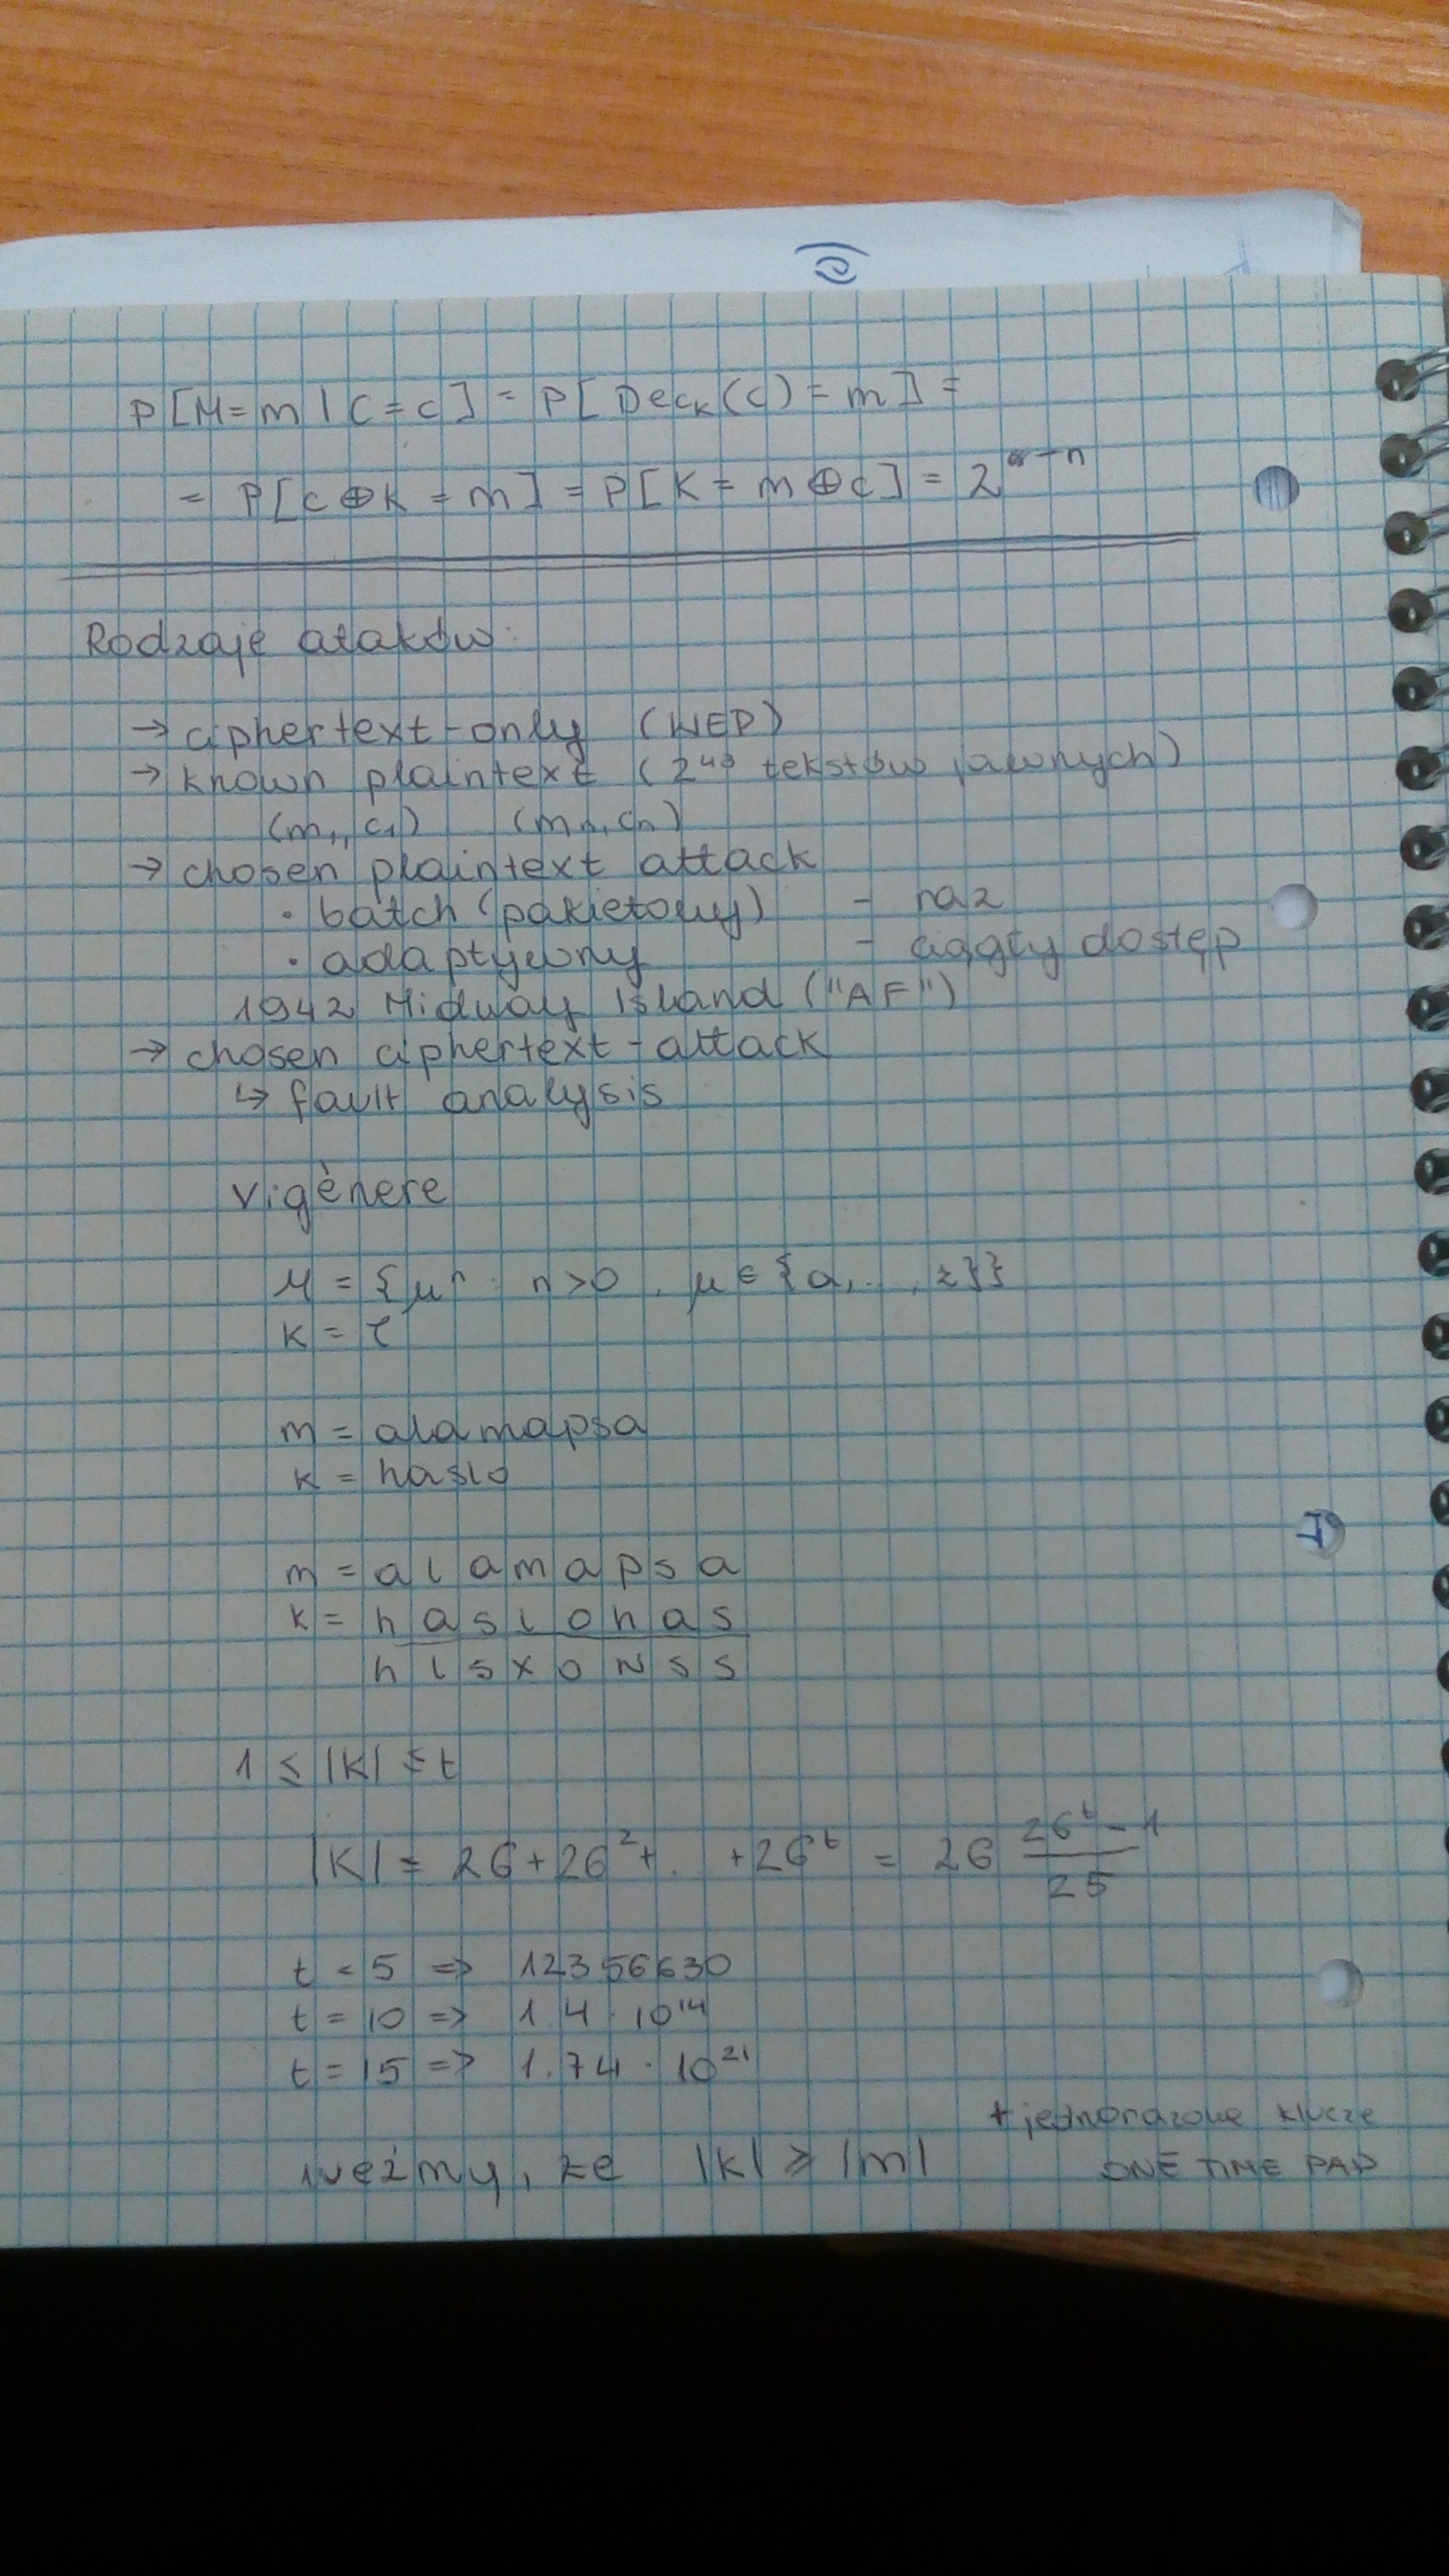 P[M=m|C=c] = P[Dec_K(c)=m] =
= P[c⊕K=m] = P[K=m⊕c] = 2^{-n}
Rodzaje ataków:
→ ciphertext-only (WEP)
→ known plaintext (2^{43} tekstów jawnych)
(m₁, c₁) (mₙ, cₙ)
→ chosen plaintext attack
· batch (pakietowy) - raz
· adaptywny - ciągły dostęp
1942 Midway Island ("AF")
→ chosen ciphertext-attack
↳ fault analysis
Vigènere
M = {μⁿ : n>0, μ ∈ {a,..,z}}
K =
m = alamapsa
k = haslo
m = a l a m a p s a
k = h a s l o h a s
h l s x o w s s
1 ≤ |K| ≤ t
|K| = 26+26²+. +26^t = 26 \frac{26^t-1}{25}
t = 5 => 12356630
t = 10 => 1.4 · 10^{14}
t = 15 => 1.74 · 10^{21}
+ jednorazowe klucze
weźmy, że |k| ≥ |m| ONE TIME PAD